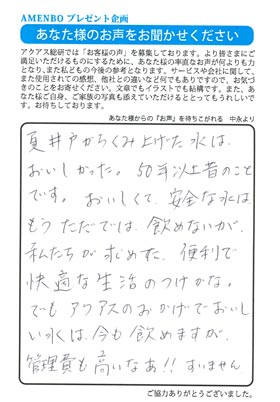 AMENBO プレゼント企画
あなた様のお声をお聞かせください
アクアス総研では「お客様の声」を募集しております。より皆さまにご
満足いただけるものにするために、あなた様の率直なお声が何よりも力
となり、また私どもの今後の参考となります。サービスや会社に関して、
また使用されての感想、他社との違いなど何でもありですので、お気づ
きのことをお寄せください。文章でもイラストでも結構です。また、あな
た様ご自身、ご家族の写真も添えていただけるととってもうれしいで
す。お待ちしております。
あなた様からの『お声』を待ちこがれる 中永より
夏井戸からくみ上げた水は、
おいしかった。50年以上昔のこと
です。おいしくて、安全な水は
もうただでは、飲めないが、
私たちが求めた、便利で
快適な生活のつけかな。
でもアクアスのおかげでおいし
い水は、今も飲めますが、
管理費も高いなあ!!すいません
ご協力ありがとうございました。